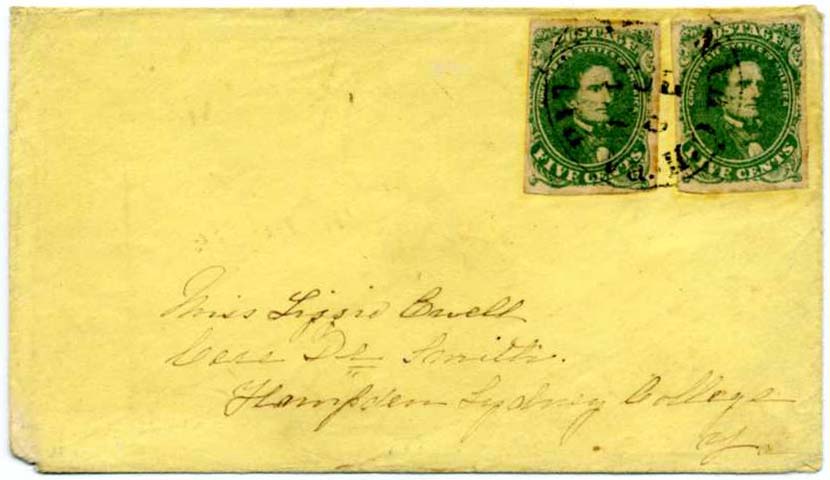 POSTAGE
CONFEDERATE STATES OF AMERICA
FIVE CENTS
POSTAGE
CONFEDERATE STATES OF AMERICA
FIVE CENTS
Miss Lizzie Ewell
Care Dr Smith.
Hampden Sydney College